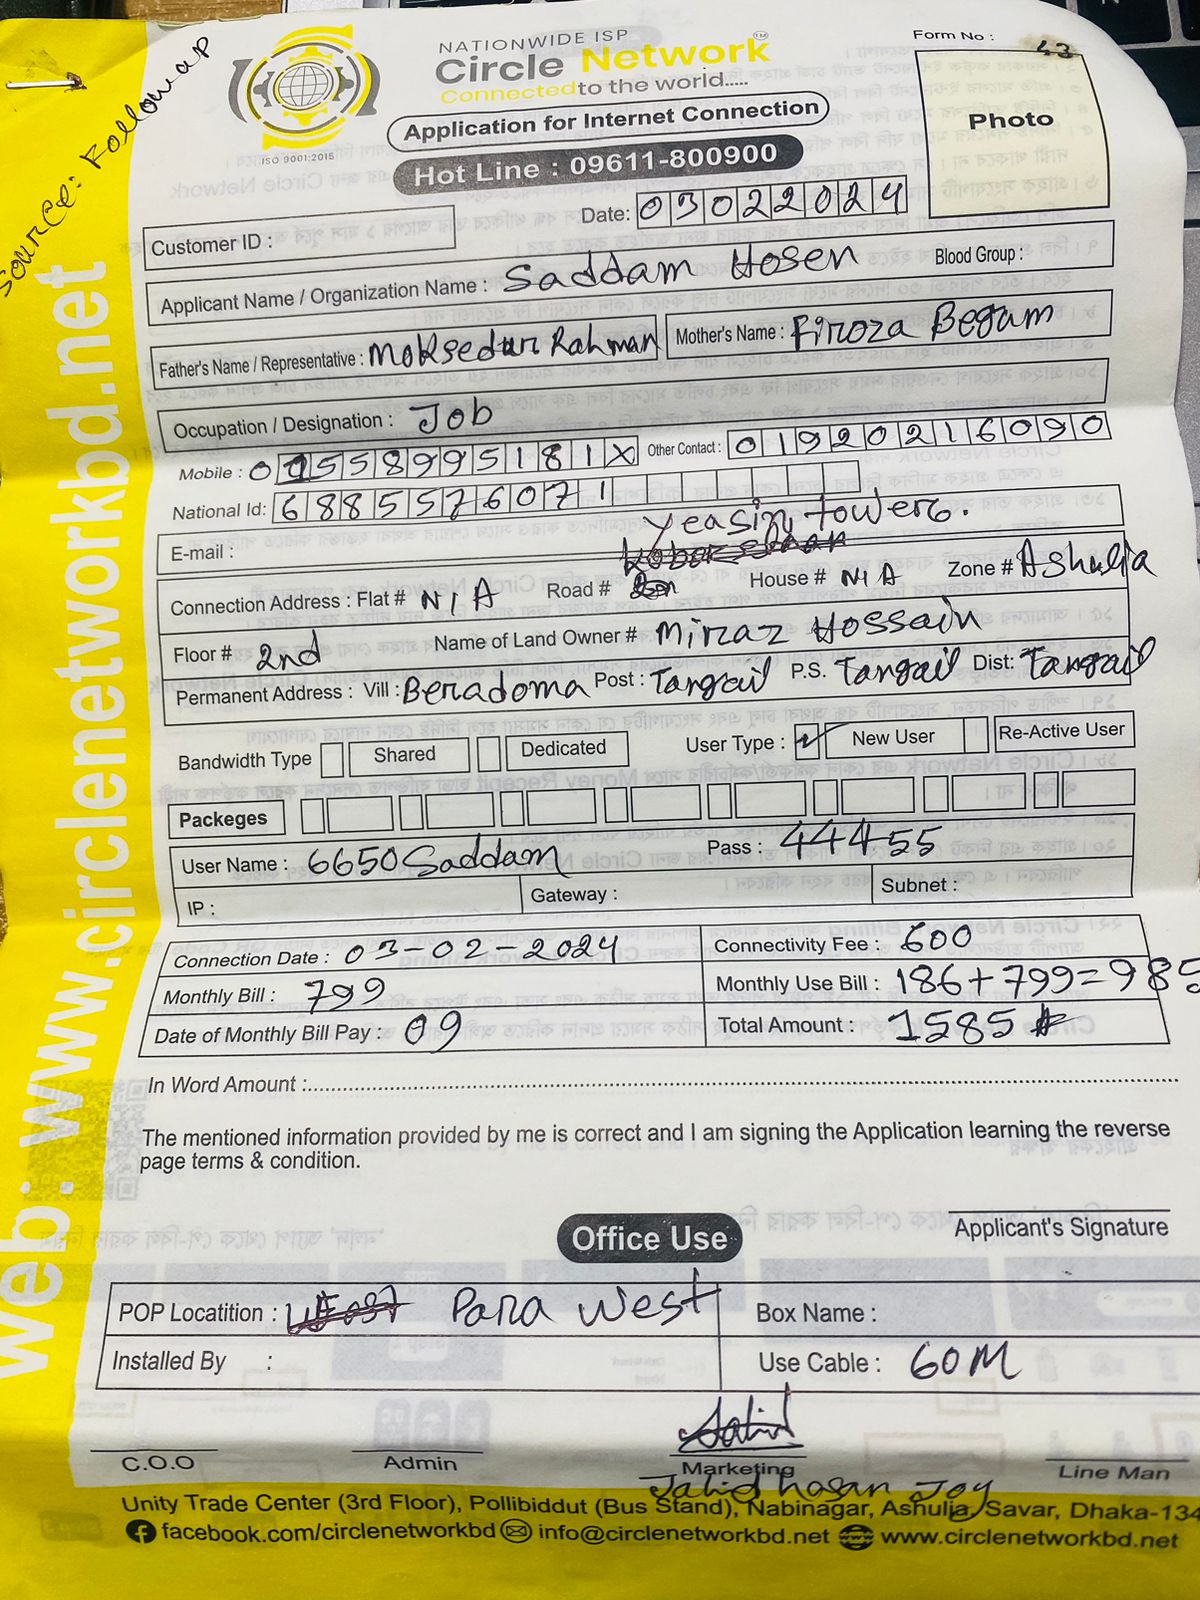 Source: Followap
NATIONWIDE ISP
Circle Network™
Connected to the world.....
ISO 9001:2015
Application for Internet Connection
Hot Line : 09611-800900
Form No : 43
Photo
Date: 03022024
Customer ID :
Applicant Name / Organization Name : Saddam Hosen Blood Group :
Father's Name / Representative : Moksedur Rahman Mother's Name : Firoza Begam
Occupation / Designation : Job
Mobile : 01558995181X Other Contact : 01920216090
National Id: 6885576071
Yeasin towers.
E-mail :
Connection Address : Flat # N/A Road # House # N/A Zone # Ashulia
Floor # 2nd Name of Land Owner # Miraz Hossain
Permanent Address : Vill : Beradoma Post : Tangail P.S. Tangail Dist: Tangail
Bandwidth Type Shared Dedicated User Type : ✓ New User Re-Active User
Packeges
User Name : 6650Saddam Pass : 444455
IP : Gateway : Subnet :
Connection Date : 03-02-2024 Connectivity Fee : 600
Monthly Bill : 799 Monthly Use Bill : 186+799=985
Date of Monthly Bill Pay : 09 Total Amount : 1585
In Word Amount :
The mentioned information provided by me is correct and I am signing the Application learning the reverse
page terms & condition.
Applicant's Signature
Office Use
POP Locatition : Para West Box Name :
Installed By : Use Cable : 60M
C.O.O Admin Marketing Line Man
Jahid hasan Joy
Unity Trade Center (3rd Floor), Pollibiddut (Bus Stand), Nabinagar, Ashulia, Savar, Dhaka-134
facebook.com/circlenetworkbd info@circlenetworkbd.net www.circlenetworkbd.net
Web: www.circlenetworkbd.net